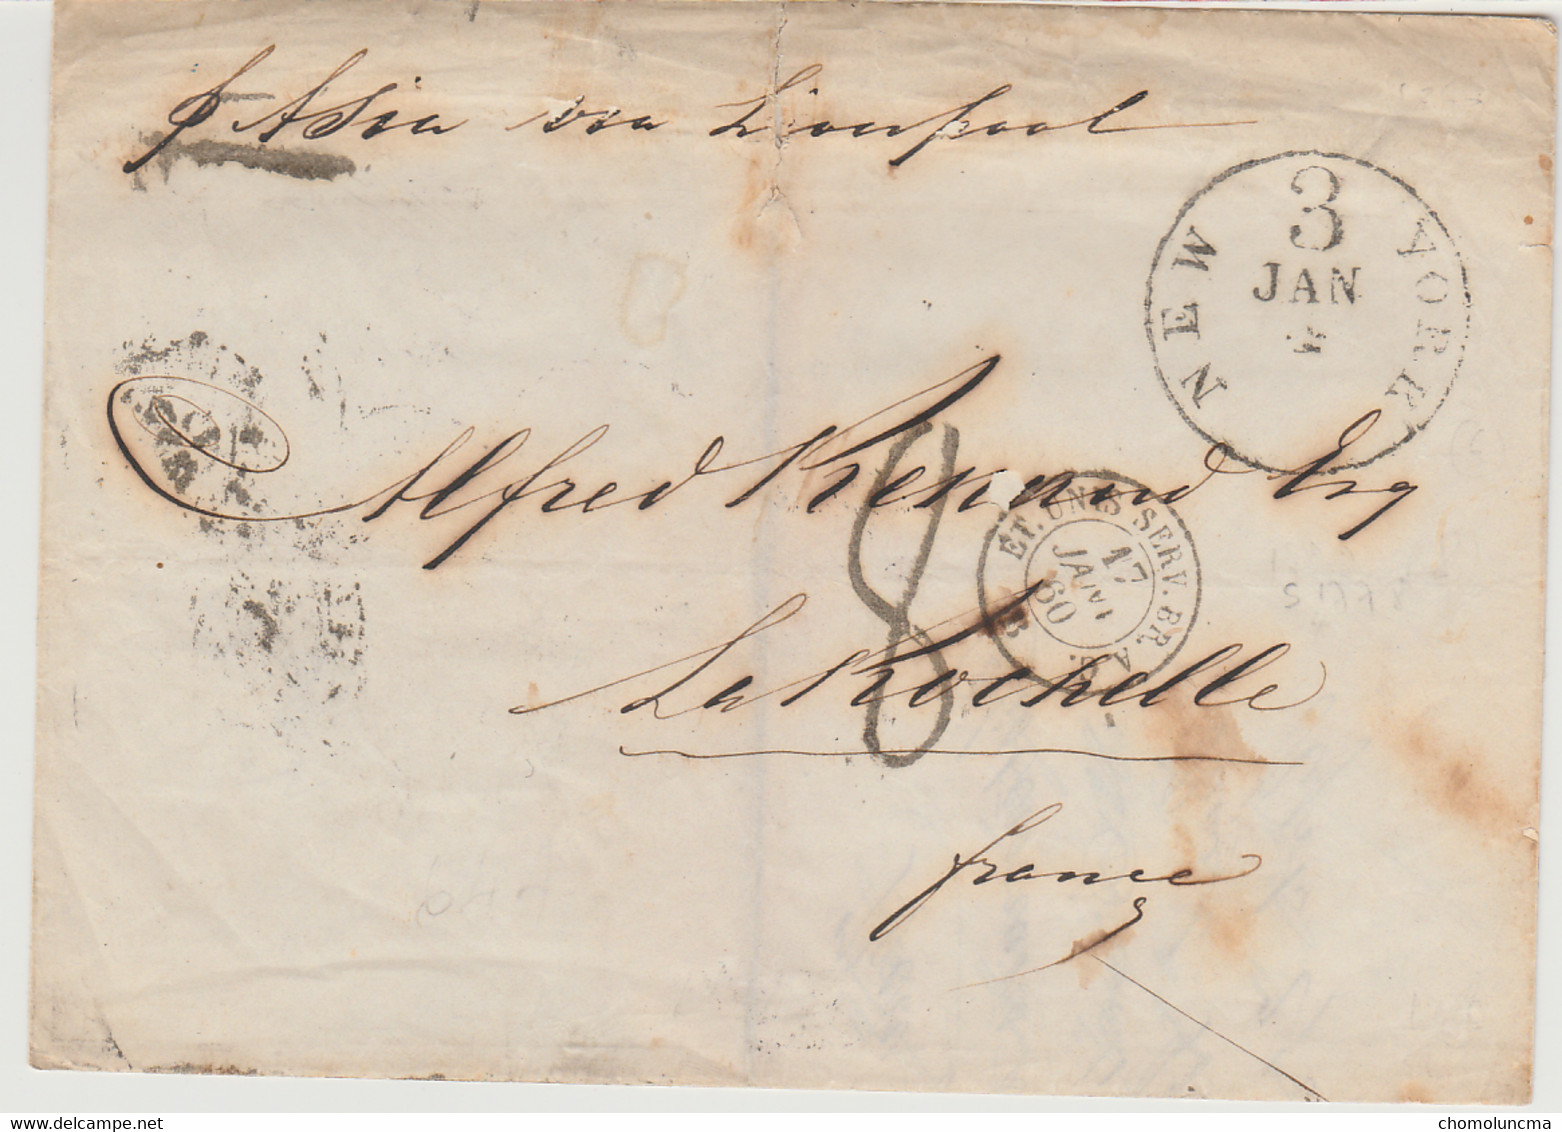 p Asia via Liverpool
NEW YORK
3
JAN
Alfred Renaud Esq
8
ET. UNIS SERV. BR. A. C.
17
JANV
60
B
La Rochelle
france
delcampe.net
chomoluncma